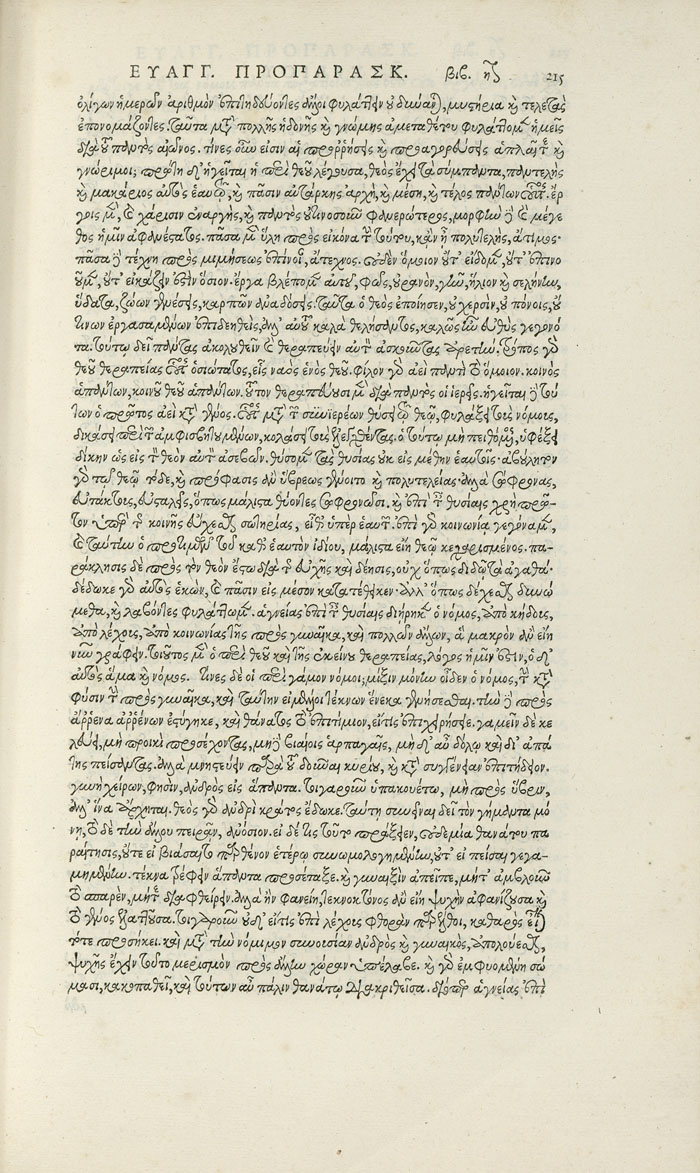 ΕΥΑΓΓ. ΠΡΟΠΑΡΑΣΚ. βιβ. η 215
ὀλίγων ἡμερῶν ἀριθμὸν ἐπιτηδεύοντες ἄλλοι φυλάττειν οὐ δύνανται, μυστήρια καὶ τελετὰς
ἐπονομάζοντες. ταῦτα μεθ' πολλῆς ἡδονῆς καὶ γνώμης ἀμεταθέτου φυλάττομεν ἡμεῖς
διὰ τοῦ παντὸς αἰῶνος. τίνες οὖν εἰσιν αἱ προρρήσεις καὶ προαγορεύσεις ἁπλαῖ τε καὶ
γνώριμοι; πρώτη δ' ἡγεῖται ἡ περὶ θεοῦ λέγουσα, θεὸς ἔχει τὰ σύμπαντα, παντελὴς
καὶ μακάριος αὐτὸς ἑαυτῷ, καὶ πᾶσιν αὐτάρκης ἀρχὴ, καὶ μέση, καὶ τέλος πάντων οὗτος. ἔρ
γοις μὲν, καὶ χάρισιν ἐναργὴς, καὶ παντὸς οὗτινοσοῦν φανερώτερος, μορφὴν δὲ καὶ μέγε
θος ἡμῖν ἀφανέστατος. πᾶσα μὲν ὕλη πρὸς εἰκόνα τὴν τούτου, κἂν ᾖ πολυτελὴς, ἄτιμος·
πᾶσα δὲ τέχνη πρὸς μιμήσεως ἐπίνοιαν, ἄτεχνος. οὐδὲν ὅμοιον οὔτ' εἴδομεν, οὔτ' ἐπινο
οῦμεν, οὔτ' εἰκάζειν ἐστὶν ὅσιον. ἔργα βλέπομεν αὐτοῦ, φῶς, οὐρανὸν, γῆν, ἥλιον καὶ σελήνην,
ὕδατα, ζώων γενέσεις, καρπῶν ἀναδόσεις. ταῦτα ὁ θεὸς ἐποίησεν, οὐ χερσὶν, οὐ πόνοις, οὔ
τινων ἐργασαμένων ἐπιδεηθεὶς, ἀλλ' αὐτοῦ καλὰ θελήσαντος, καλῶς ἦν εὐθὺς γεγονό
τα. τούτῳ δεῖ πάντας ἀκολουθεῖν καὶ θεραπεύειν αὐτὸν ἀσκοῦντας ἀρετήν. τρόπος γὰρ
θεοῦ θεραπείας οὗτος ὁσιώτατος, εἷς ναὸς ἑνὸς θεοῦ. φίλον γὰρ ἀεὶ παντὶ τὸ ὅμοιον. κοινὸς
ἁπάντων, κοινοῦ θεοῦ ἁπάντων. τοῦτον θεραπεύουσι μὲν διὰ παντὸς οἱ ἱερεῖς. ἡγεῖται δὲ τού
των ὁ πρῶτος ἀεὶ κατὰ γένος. οὗτος μετὰ τῶν συνιερέων θύσει τῷ θεῷ, φυλάξει τοὺς νόμους,
δικάσει περὶ τῶν ἀμφισβητουμένων, κολάσει τοὺς ἐξελεγχθέντας. ὁ τούτῳ μὴ πειθόμενος, ὑφέξει
δίκην ὡς εἰς τὸν θεὸν αὐτὸν ἀσεβῶν. θύομεν τὰς θυσίας οὐκ εἰς μέθην ἑαυτοῖς· ἀβούλητον
γὰρ τῷ θεῷ τόδε, καὶ πρόφασις ἂν ὕβρεως γένοιτο καὶ πολυτελείας· ἀλλὰ σώφρονας,
εὐτάκτους, εὐσταλεῖς, ὅπως μάλιστα θύοντες σωφρονῶσι. καὶ ἐπὶ ταῖς θυσίαις χρὴ πρῶ-
τον ὑπὲρ τῆς κοινῆς εὔχεσθαι σωτηρίας, εἶθ' ὑπὲρ ἑαυτῶν. ἐπὶ γὰρ κοινωνίᾳ γεγόναμεν,
καὶ ταύτην ὁ προτιμῶν τοῦ καθ' ἑαυτὸν ἰδίου, μάλιστα εἴη θεῷ κεχαρισμένος. πα-
ράκλησις δὲ πρὸς τὸν θεὸν ἔστω διὰ τῆς εὐχῆς καὶ δέησις, οὐχ ὅπως διδῷ τὰ ἀγαθά·
δέδωκε γὰρ αὐτὸς ἑκὼν, καὶ πᾶσιν εἰς μέσον κατατέθεικεν· ἀλλ' ὅπως δέχεσθαι δυνώ
μεθα, καὶ λαβόντες φυλάττωμεν. ἁγνείας ἐπὶ ταῖς θυσίαις διῄρηκεν ὁ νόμος, ἀπὸ κήδους,
ἀπὸ λέχους, ἀπὸ κοινωνίας τῆς πρὸς γυναῖκα, καὶ πολλῶν ἄλλων, ἃ μακρὸν ἂν εἴη
νῦν γράφειν. τοιοῦτος μὲν ὁ περὶ θεοῦ καὶ τῆς ἐκείνου θεραπείας, λόγος ἡμῖν ἐστιν, ὁ δ'
αὐτὸς ἅμα καὶ νόμος. τίνες δὲ οἱ περὶ γάμον νόμοι; μίξιν μόνην οἶδεν ὁ νόμος, τὴν κατὰ
φύσιν τὴν πρὸς γυναῖκα, καὶ ταύτην εἰ μέλλοι τέκνων ἕνεκα γενήσεσθαι. τὴν δὲ πρὸς
ἄρρενα ἀρρένων ἐστύγηκε, καὶ θάνατος τὸ ἐπιτίμιον, εἴ τις ἐπιχειρήσειε. γαμεῖν δὲ κε
λεύει, μὴ προικὶ προσέχοντας, μηδὲ βιαίοις ἁρπαγαῖς, μηδ' αὖ δόλῳ καὶ δι' ἀπά
της πείσαντας· ἀλλὰ μνηστεύειν παρὰ τοῦ δοῦναι κυρίου, καὶ κατὰ συγγένειαν ἐπιτήδειον.
γυνὴ χείρων, φησὶν, ἀνδρὸς εἰς ἅπαντα. τοιγαροῦν ὑπακουέτω, μὴ πρὸς ὕβριν,
ἀλλ' ἵνα ἄρχηται. θεὸς γὰρ ἀνδρὶ κράτος ἔδωκε. ταύτῃ συνεῖναι δεῖ τὸν γήμαντα μό
νῃ, τὸ δὲ τὴν ἄλλου πειρᾶν, ἀνόσιον. εἰ δέ τις τοῦτο πράξειεν, οὐδεμία θανάτου πα
ραίτησις, οὔτε εἰ βιάσαιτο παρθένον ἑτέρῳ συνωμολογημένην, οὔτ' εἰ πείσαι γεγα-
μημένην. τέκνα τρέφειν ἅπαντα προσέταξε. καὶ γυναιξὶν ἀπεῖπε, μήτ' ἀμβλοῦν
τὸ σπαρὲν, μήτε διαφθείρειν. ἀλλὰ ἢν φανείη, τεκνοκτόνος ἂν εἴη ψυχὴν ἀφανίζουσα καὶ
τὸ γένος ἐλαττοῦσα. τοιγαροῦν οὐδ' εἴ τις ἐπὶ λέχους φθορὰν παρέλθοι, καθαρὸς εἶναι
τότε προσήκει. καὶ μετὰ τὴν νόμιμον συνουσίαν ἀνδρὸς καὶ γυναικὸς, ἀπολούεσθαι,
ψυχῆς ἔχειν τοῦτο μερισμὸν πρὸς ἄλλην χώραν ὑπέλαβε. καὶ γὰρ ἐμφυομένη σώ
μασι, κακοπαθεῖ, καὶ τούτων αὖ πάλιν θανάτῳ διακριθεῖσα. διόπερ ἁγνείας ἐπὶ